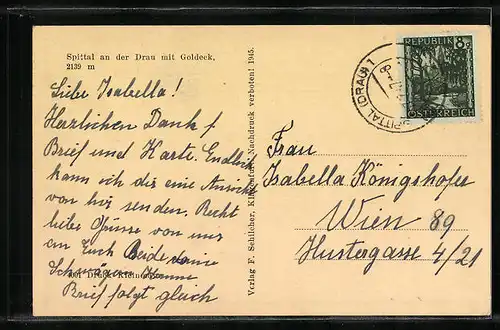 Spittal an der Drau mit Goldeck,
2139 m
Liebe Isabella!
Herzlichen Dank f
Brief und Karte. Endlich
kann ich dir eine Ansicht
von hir senden. Recht
liebe Grüsse von mir
an Euch Beide
Brief folgt gleich
Verlag F. Schilcher, Klagenfurt. Nachdruck verboten! 1945.
REPUBLIK 8g
ÖSTERREICH
SPITTAL (DRAU) 1
Frau
Isabella Königshofer
Wien 89
Hustergasse 4/21